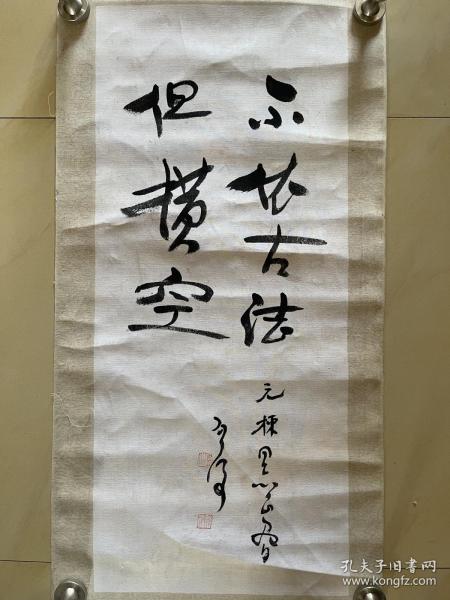 不其古法
但横空
元栋
孔夫子旧书网
www.kongfz.com